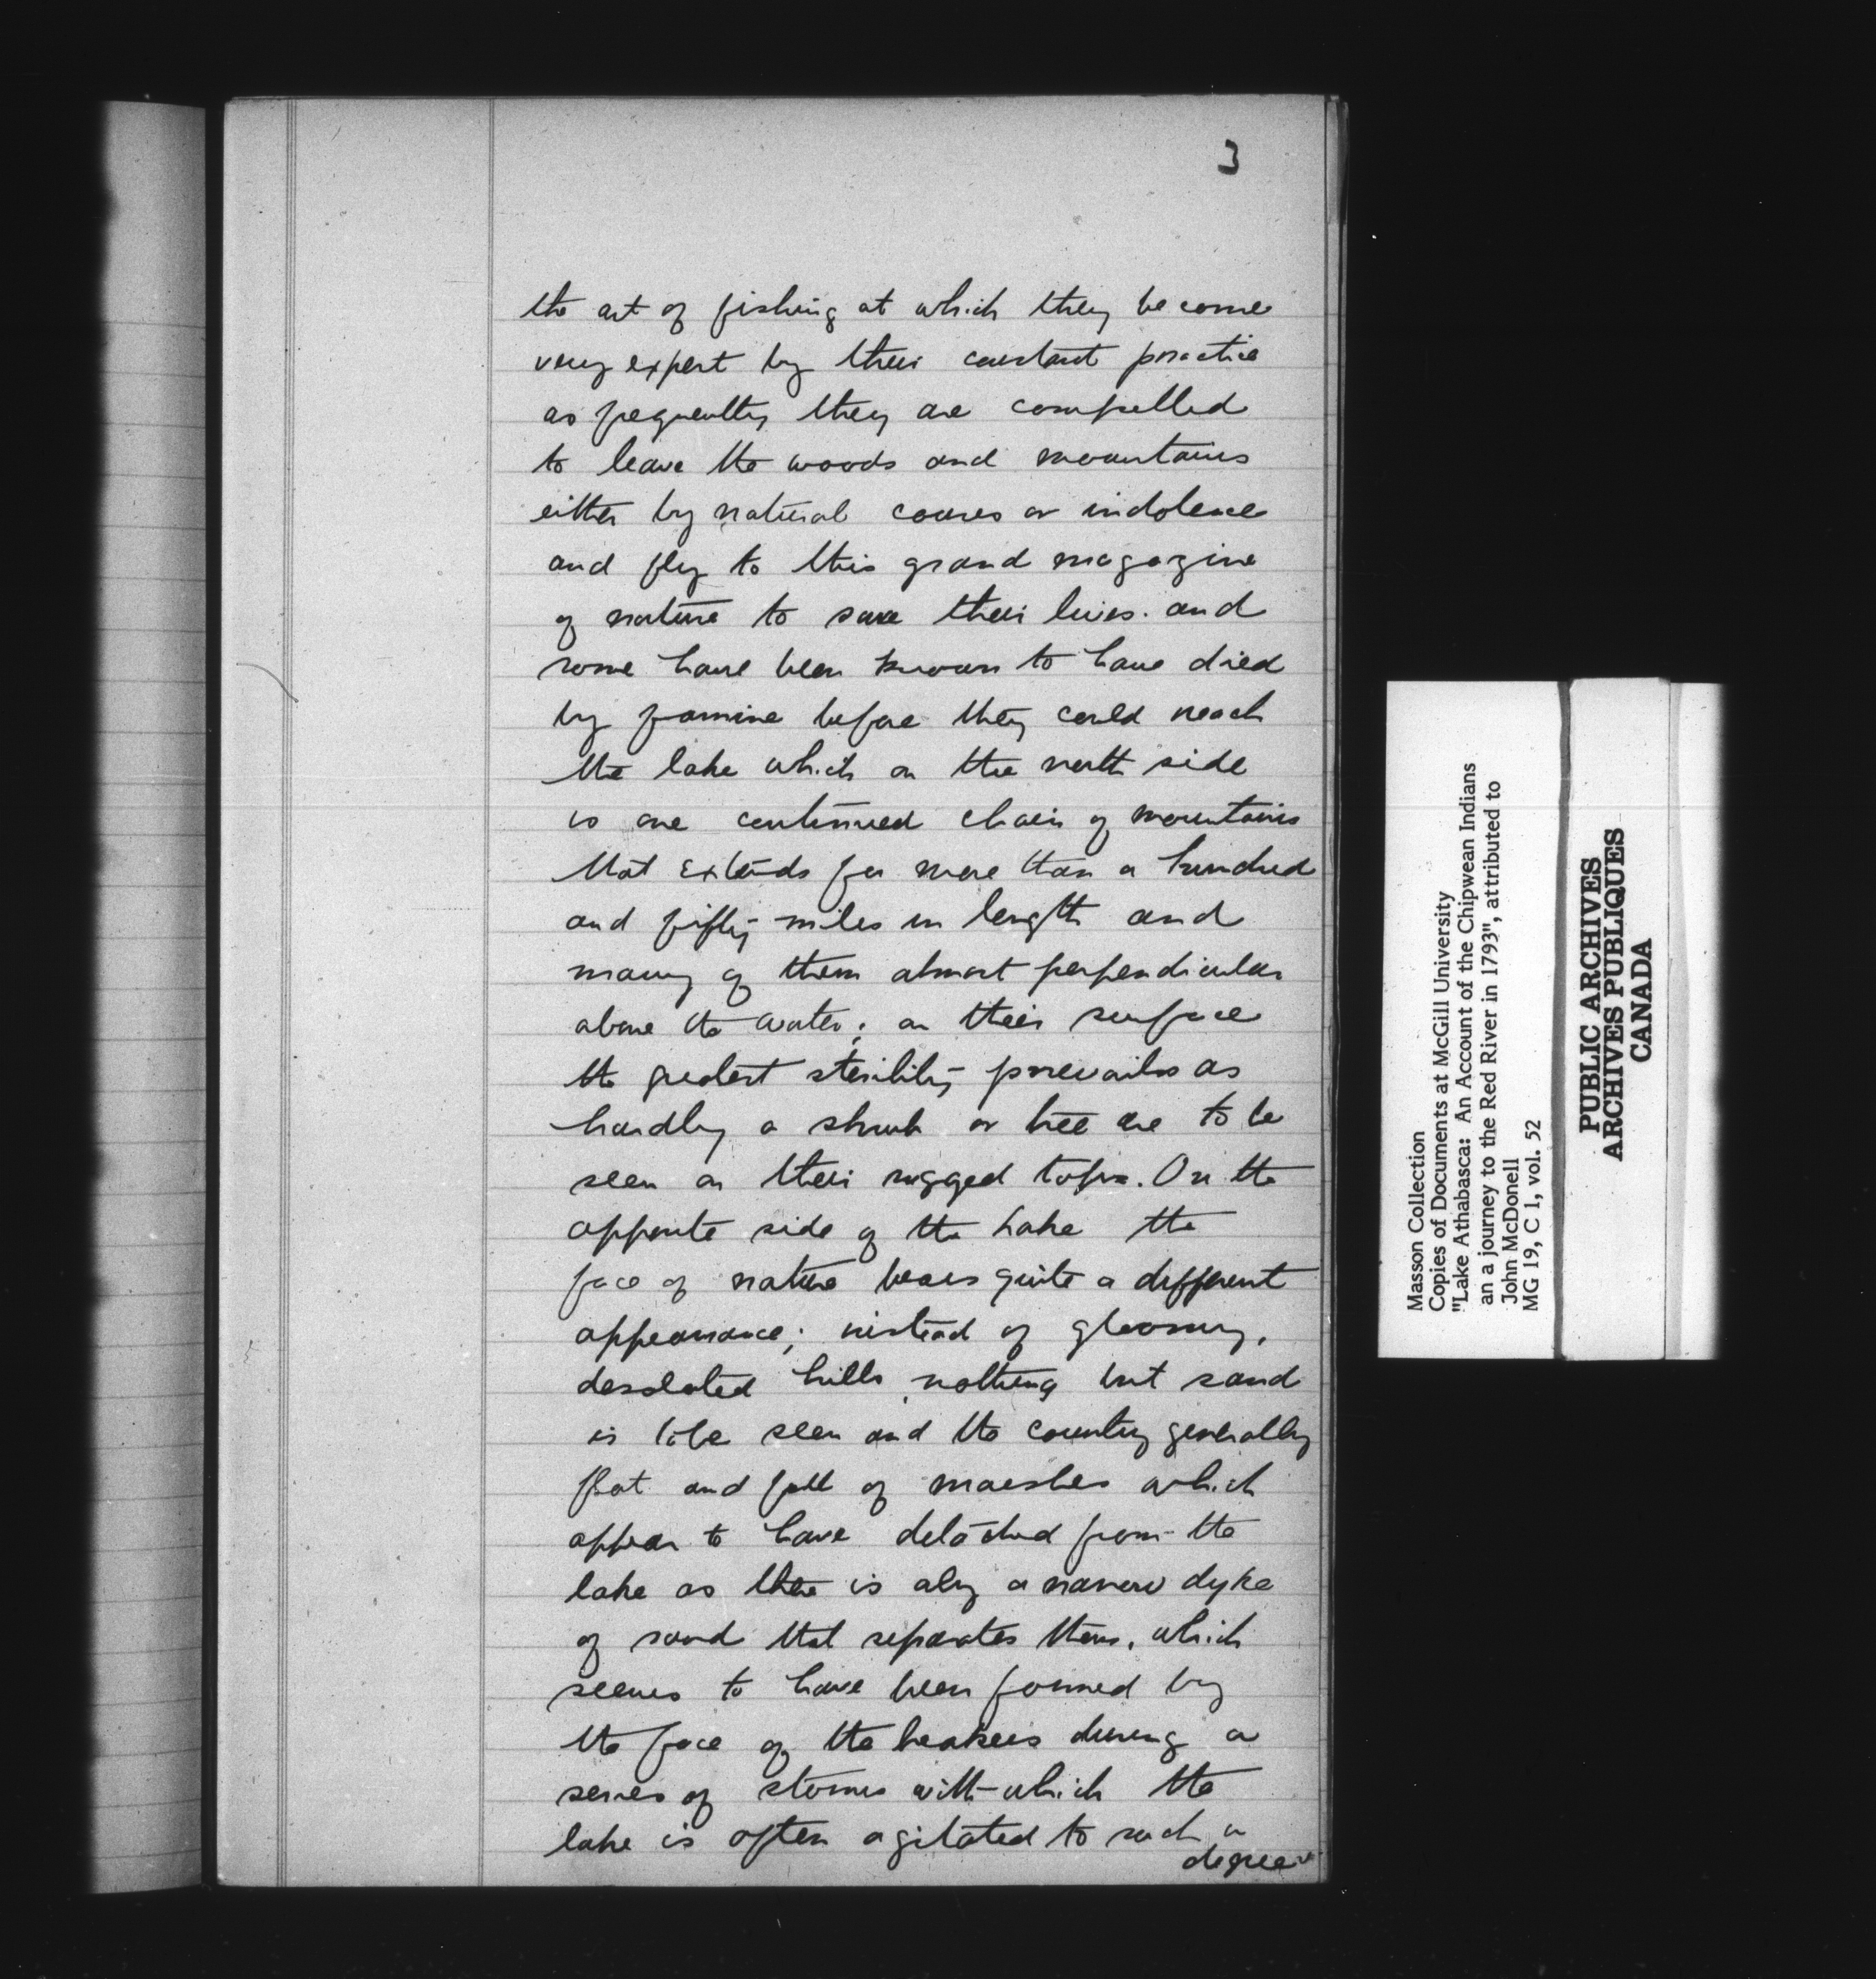 3
the art of fishing at which they become
very expert by their constant practice
as frequently they are compelled
to leave the woods and mountains
either by natural causes or indolence
and fly to this grand magazine
of nature to save their lives. and
some have been known to have died
by famine before they could reach
the lake which on the north side
is one continued chain of mountains
that extends for more than a hundred
and fifty miles in length and
many of them almost perpendicular
above the water; on their surface
the greatest sterility prevails as
hardly a shrub or tree are to be
seen on their rugged tops. On the
opposite side of the Lake the
face of nature bears quite a different
appearance; instead of gloomy,
desolated hills, nothing but sand
is to be seen and the country generally
flat and full of marshes which
appear to have detached from the
lake as there is only a narrow dyke
of sand that separates them, which
seems to have been formed by
the force of the breakers during a
series of storms with which the
lake is often agitated to such a
degree
Masson Collection
Copies of Documents at McGill University
"Lake Athabasca: An Account of the Chipwean Indians
an a journey to the Red River in 1793", attributed to
John McDonell
MG 19, C 1, vol. 52
PUBLIC ARCHIVES
ARCHIVES PUBLIQUES
CANADA